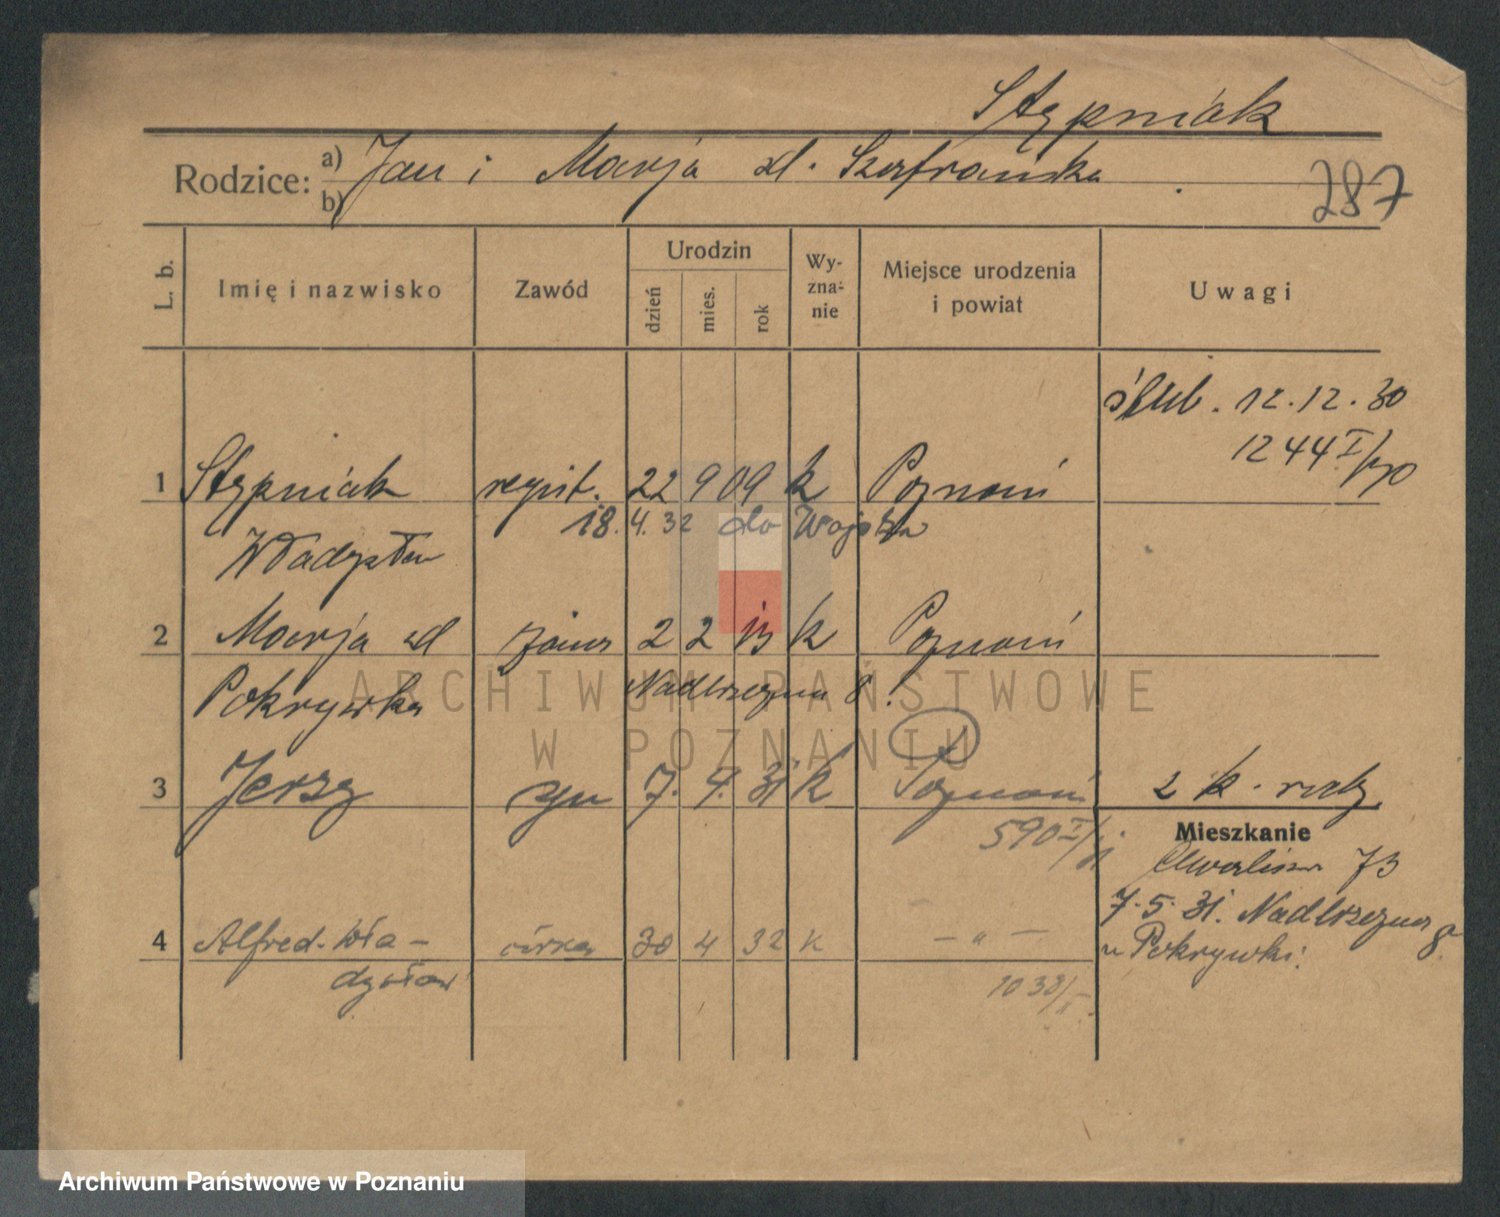 Stypniak
Rodzice: a) Jan i Marja zd. Szafrańska
b)
287
L. b. Imię i nazwisko Zawód Urodzin dzień mies. rok Wy-zna-nie Miejsce urodzenia i powiat Uwagi
ślub. 12.12.30
1244 I/
1 Stypniak regist. 22 9 09 k Poznań
18.4.32 do Wojska
Władysław
2 Marja zd żona 2 2 13 k Poznań
Pokrywka Nadbrzeżna 8.
3 Jerzy syn 7. 4. 31 k Poznań 2 k.
590 I/
Mieszkanie
Chwalisz. 73
7.5.31. Nadbrzeżna 8
4 Alfred-Wła- córka 30 4 32 k — " — u Pokrywki.
dysław 1038/I
ARCHIWUM PAŃSTWOWE
W POZNANIU
Archiwum Państwowe w Poznaniu